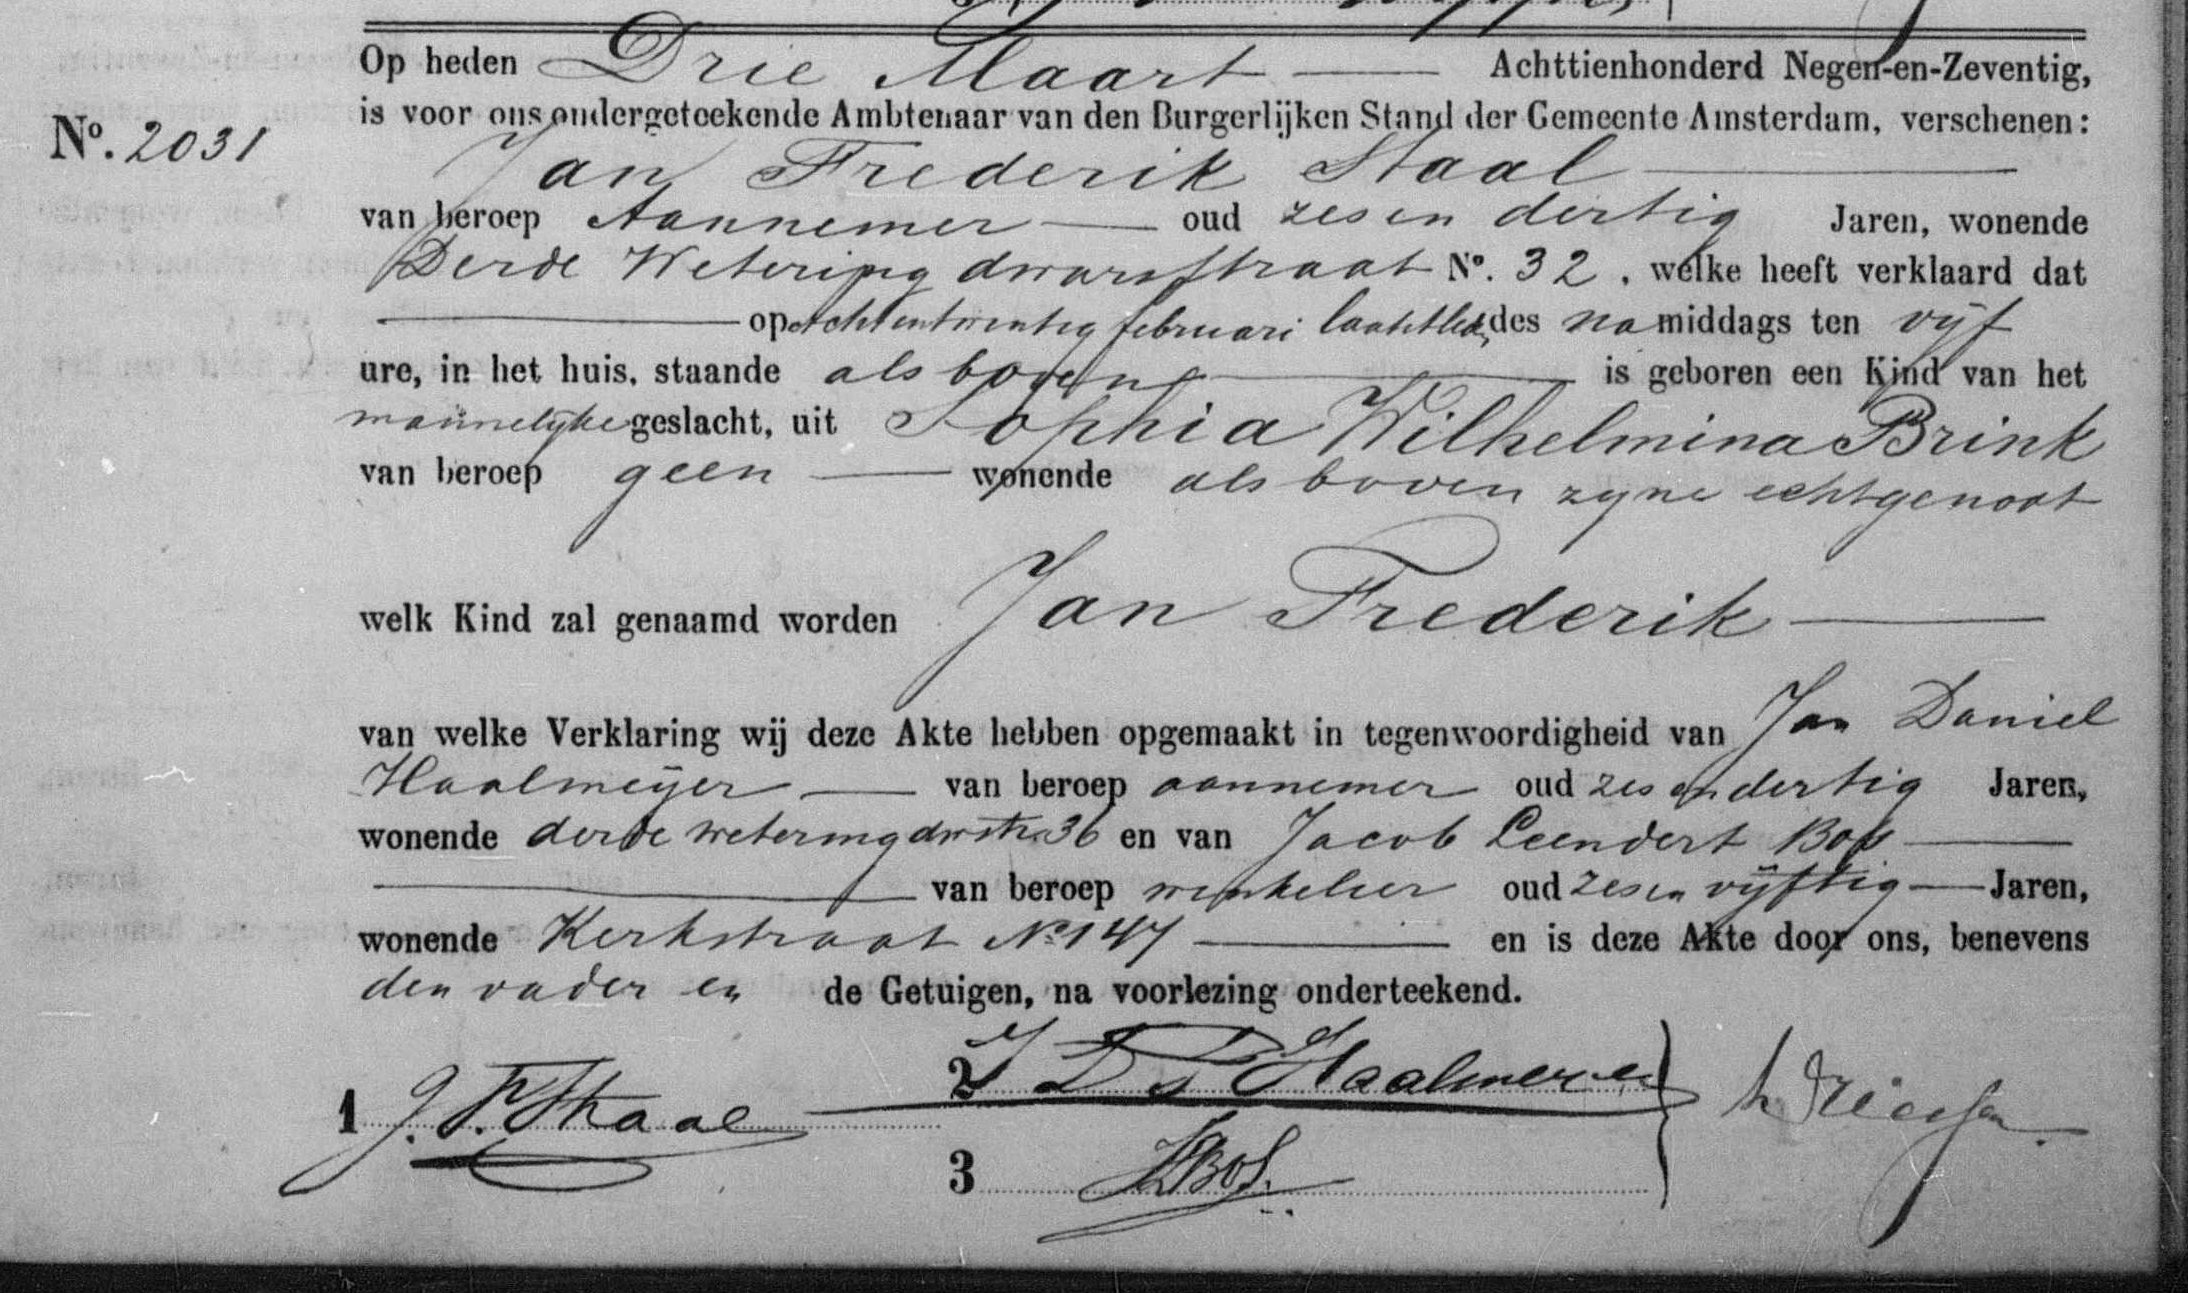 Op heden Drie Maart Achttienhonderd Negen-en-Zeventig,
is voor ons ondergeteekende Ambtenaar van den Burgerlijken Stand der Gemeente Amsterdam, verschenen:
No. 2031
Jan Frederik Staal
van beroep Aannemer oud zesen dertig Jaren, wonende
Derde Wetering dwarsstraat No. 32, welke heeft verklaard dat
op achtentwintig februari laatstleden des namiddags ten vijf
ure, in het huis, staande als boven is geboren een Kind van het
mannelijke geslacht, uit Sophia Wilhelmina Brink
van beroep geen wonende als boven zyne echtgenoot
welk Kind zal genaamd worden Jan Frederik
van welke Verklaring wij deze Akte hebben opgemaakt in tegenwoordigheid van Jan Daniel
Haalmeijer van beroep aannemer oud zes en dertig Jaren,
wonende derde weteringdwstr. 36 en van Jacob Leendert Bos
van beroep winkelier oud zesen vijftig Jaren,
wonende Kerkstraat No 147 en is deze Akte door ons, benevens
den vader en de Getuigen, na voorlezing onderteekend.
1 J. F. Staal
2 J D Haalmeyer
3 JLBos.